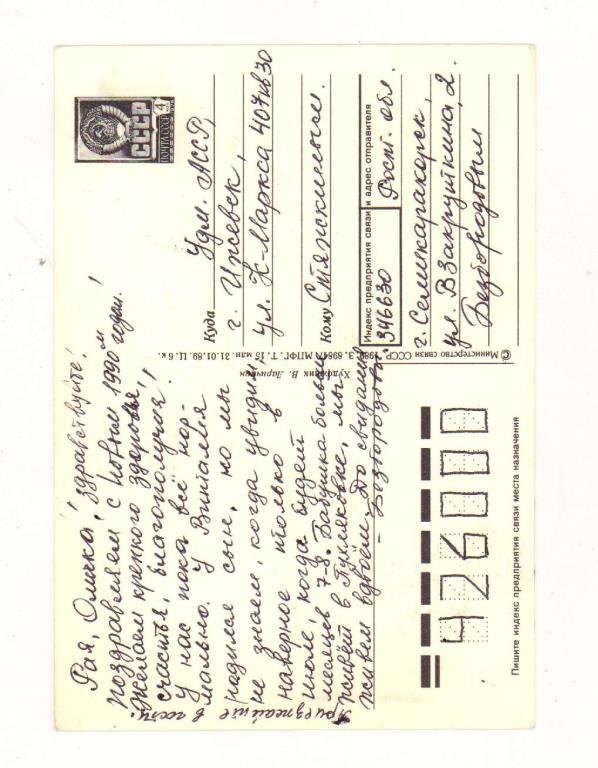 Рая, Оличка! здравствуйте!
поздравляем с Новым 1990ым годом!
Желаем крепкого здоровья,
счастья, благополучия!
У нас пока всё нор-
мально. У Виталия
родился сын, но мы
не знаем, когда увидим
наверное только в
июле, когда будет
месяцев 7-8. Бабушка больше
живёт в, мы
живем вдвоём. До свидания
Безбородовы
Приезжайте в гости.
ПОЧТА СССР 4
СССР
Куда Удм. АССР,
г. Ижевск,
ул. К-Маркса 407 кв 30
Кому
Индекс предприятия связи и адрес отправителя
346630 Рост. обл.
г. Семикаракорск,
ул. В Закруткина, 2.
Безбородовым
© Министерство связи СССР. 1989. З. 8985. МПФГ. Т. 15 млн. 31.01.89. Ц. 6 к.
Художник В.
426000
Пишите индекс предприятия связи места назначения